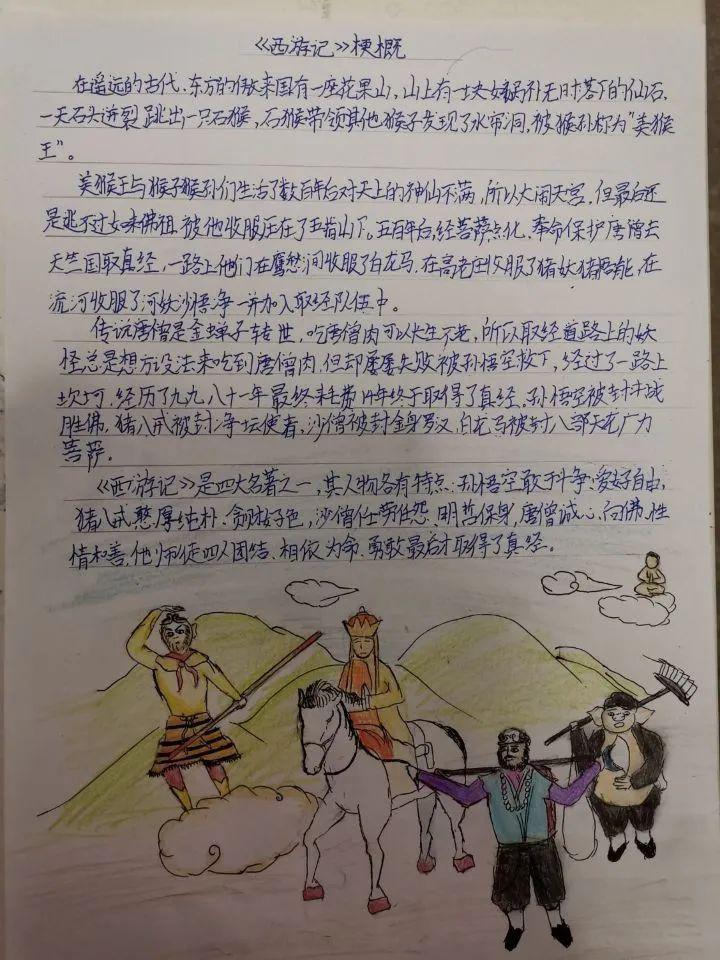 《西游记》梗概
在遥远的古代、东方的傲来国有一座花果山，山上有一块女娲补天时落下的仙石，
一天石头迸裂跳出一只石猴，石猴带领其他猴子发现了水帘洞，被猴孙称为"美猴
王"。
美猴王与猴子猴孙们生活了数百年后对天上的神仙不满，所以大闹天宫，但最后还
是逃不过如来佛祖，被他收服压在了五指山下。五百年后，经菩萨点化、奉命保护唐僧去
天竺国取真经，一路上他们在鹰愁涧收服了白龙马，在高老庄收服了猪妖猪悟能，在
流河收服了河妖沙悟净一并加入取经队伍中。
传说唐僧是金蝉子转世，吃唐僧肉可以长生不老，所以取经道路上的妖
怪总是想方设法来吃到唐僧肉，但却屡屡失败被孙悟空救下，经过了一路上
坎坷，经历了九九八十一年最终耗费14年终于取得了真经、孙悟空被封斗战
胜佛，猪八戒被封净坛使者，沙僧被封金身罗汉，白龙马被封八部天龙广力
菩萨。
《西游记》是四大名著之一，其人物各有特点：孙悟空敢于斗争、爱好自由，
猪八戒憨厚纯朴、贪财好色，沙僧任劳任怨、明哲保身，唐僧诚心向佛、性
情和善，他师徒四人团结、相依为命、勇敢最后才取得了真经。